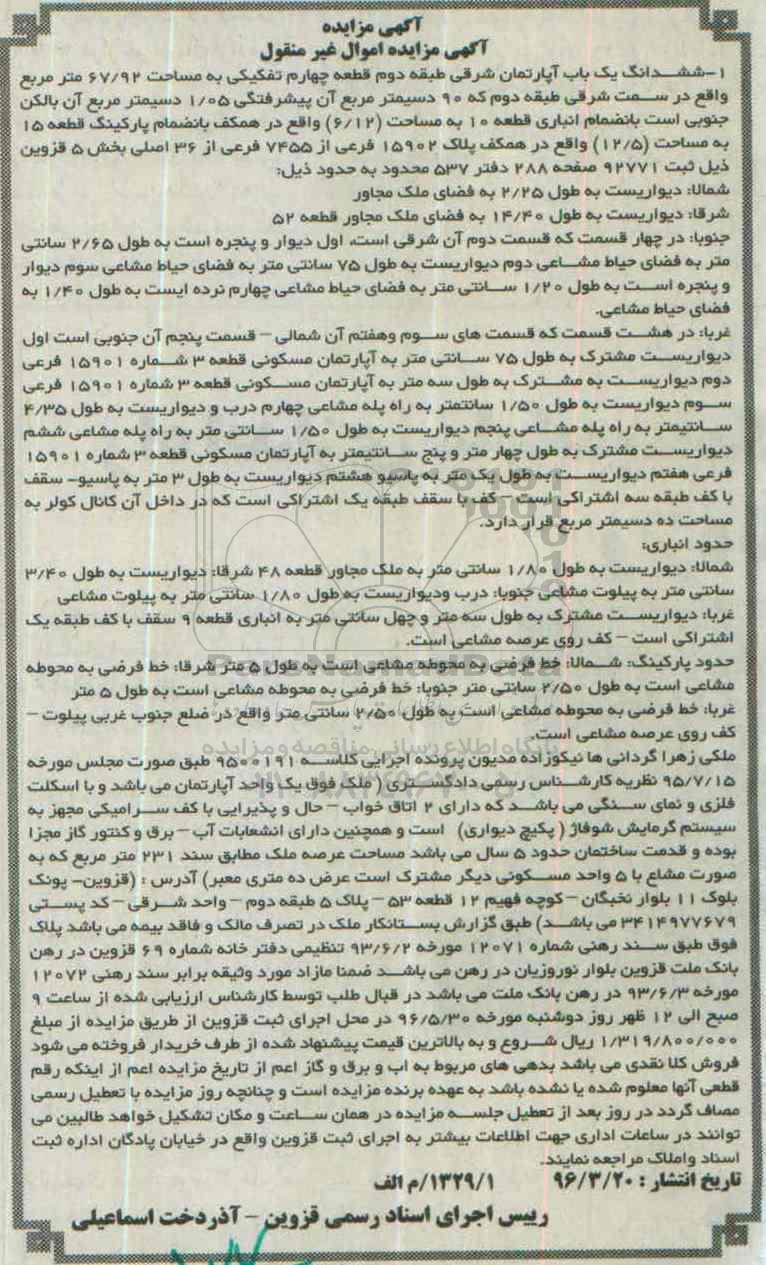 آگهی مزایده
آگهی مزایده اموال غیر منقول
۱-ششدانگ یک باب آپارتمان شرقی طبقه دوم قطعه چهارم تفکیکی به مساحت ۶۷/۹۲ متر مربع
واقع در سمت شرقی طبقه دوم که ۹۰ دسیمتر مربع آن پیشرفتگی ۱/۰۵ دسیمتر مربع آن بالکن
جنوبی است بانضمام انباری قطعه ۱۰ به مساحت (۶/۱۲) واقع در همکف بانضمام پارکینگ قطعه ۱۵
به مساحت (۱۲/۵) واقع در همکف پلاک ۱۵۹۰۲ فرعی از ۷۴۵۵ فرعی از ۳۶ اصلی بخش ۵ قزوین
ذیل ثبت ۹۲۷۷۱ صفحه ۲۸۸ دفتر ۵۳۷ محدود به حدود ذیل:
شمالا: دیواریست به طول ۲/۲۵ به فضای ملک مجاور
شرقا: دیواریست به طول ۱۴/۴۰ به فضای ملک مجاور قطعه ۵۲
جنوبا: در چهار قسمت که قسمت دوم آن شرقی است، اول دیوار و پنجره است به طول ۲/۶۵ سانتی
متر به فضای حیاط مشاعی دوم دیواریست به طول ۷۵ سانتی متر به فضای حیاط مشاعی سوم دیوار
و پنجره است به طول ۱/۲۰ سانتی متر به فضای حیاط مشاعی چهارم نرده ایست به طول ۱/۴۰ به
فضای حیاط مشاعی.
غربا: در هشت قسمت که قسمت های سوم وهفتم آن شمالی – قسمت پنجم آن جنوبی است اول
دیواریست مشترک به طول ۷۵ سانتی متر به آپارتمان مسکونی قطعه ۳ شماره ۱۵۹۰۱ فرعی
دوم دیواریست به مشترک به طول سه متر به آپارتمان مسکونی قطعه ۳ شماره ۱۵۹۰۱ فرعی
سوم دیواریست به طول ۱/۵۰ سانتمتر به راه پله مشاعی چهارم درب و دیواریست به طول ۴/۳۵
سانتیمتر به راه پله مشاعی پنجم دیواریست به طول ۱/۵۰ سانتی متر به راه پله مشاعی ششم
دیواریست مشترک به طول چهار متر و پنج سانتیمتر به آپارتمان مسکونی قطعه ۳ شماره ۱۵۹۰۱
فرعی هفتم دیواریست به طول یک متر به پاسیو هشتم دیواریست به طول ۳ متر به پاسیو- سقف
با کف طبقه سه اشتراکی است – کف با سقف طبقه یک اشتراکی است که در داخل آن کانال کولر به
مساحت ده دسیمتر مربع قرار دارد.
حدود انباری:
شمالا: دیواریست به طول ۱/۸۰ سانتی متر به ملک مجاور قطعه ۴۸ شرقا: دیواریست به طول ۳/۴۰
سانتی متر به پیلوت مشاعی جنوبا: درب ودیواریست به طول ۱/۸۰ سانتی متر به پیلوت مشاعی
غربا: دیواریست مشترک به طول سه متر و چهل سانتی متر به انباری قطعه ۹ سقف با کف طبقه یک
اشتراکی است – کف روی عرصه مشاعی است.
حدود پارکینگ: شمالا: خط فرضی به محوطه مشاعی است به طول ۵ متر شرقا: خط فرضی به محوطه
مشاعی است به طول ۲/۵۰ سانتی متر جنوبا: خط فرضی به محوطه مشاعی است به طول ۵ متر
غربا: خط فرضی به محوطه مشاعی است به طول ۲/۵۰ سانتی متر واقع در ضلع جنوب غربی پیلوت –
کف روی عرصه مشاعی است.
ملکی زهرا گردانی ها نیکوزاده مدیون پرونده اجرایی کلاسه ۹۵۰۰۱۹۱ طبق صورت مجلس مورخه
۹۵/۷/۱۵ نظریه کارشناس رسمی دادگستری ( ملک فوق یک واحد آپارتمان می باشد و با اسکلت
فلزی و نمای سنگی می باشد که دارای ۲ اتاق خواب – حال و پذیرایی با کف سرامیکی مجهز به
سیستم گرمایش شوفاژ ( پکیج دیواری) است و همچنین دارای انشعابات آب – برق و کنتور گاز مجزا
بوده و قدمت ساختمان حدود ۵ سال می باشد مساحت عرصه ملک مطابق سند ۲۳۱ متر مربع که به
صورت مشاع با ۵ واحد مسکونی دیگر مشترک است عرض ده متری معبر) آدرس : (قزوین- پونک
بلوک ۱۱ بلوار نخبگان – کوچه فهیم ۱۲ قطعه ۵۳ – پلاک ۵ طبقه دوم – واحد شرقی – کد پستی
۳۴۱۴۹۷۷۶۷۹ می باشد) طبق گزارش بستانکار ملک در تصرف مالک و فاقد بیمه می باشد پلاک
فوق طبق سند رهنی شماره ۱۲۰۷۱ مورخه ۹۳/۶/۲ تنظیمی دفتر خانه شماره ۶۹ قزوین در رهن
بانک ملت قزوین بلوار نوروزیان در رهن می باشد ضمنا مازاد مورد وثیقه برابر سند رهنی ۱۲۰۷۲
مورخه ۹۳/۶/۳ در رهن بانک ملت می باشد در قبال طلب توسط کارشناس ارزیابی شده از ساعت ۹
صبح الی ۱۲ ظهر روز دوشنبه مورخه ۹۶/۵/۳۰ در محل اجرای ثبت قزوین از طریق مزایده از مبلغ
۱/۳۱۹/۸۰۰/۰۰۰ ریال شروع و به بالاترین قیمت پیشنهاد شده از طرف خریدار فروخته می شود
فروش کلا نقدی می باشد بدهی های مربوط به اب و برق و گاز اعم از تاریخ مزایده اعم از اینکه رقم
قطعی آنها معلوم شده یا نشده باشد به عهده برنده مزایده است و چنانچه روز مزایده با تعطیل رسمی
مصاف گردد در روز بعد از تعطیل جلسه مزایده در همان ساعت و مکان تشکیل خواهد طالبین می
توانند در ساعات اداری جهت اطلاعات بیشتر به اجرای ثبت قزوین واقع در خیابان پادگان اداره ثبت
اسناد واملاک مراجعه نمایند.
تاریخ انتشار : ۹۶/۳/۲۰ ۱۳۲۹/۱/م الف
رییس اجرای اسناد رسمی قزوین – آذردخت اسماعیلی
پایگاه اطلاع رسانی مناقصه و مزایده